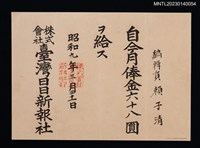 MNTL20230140054
編輯員 賴子清
自今月俸金六十八圓
ヲ給ス
昭和九年三月三十一日
株式會社臺灣日日新報社